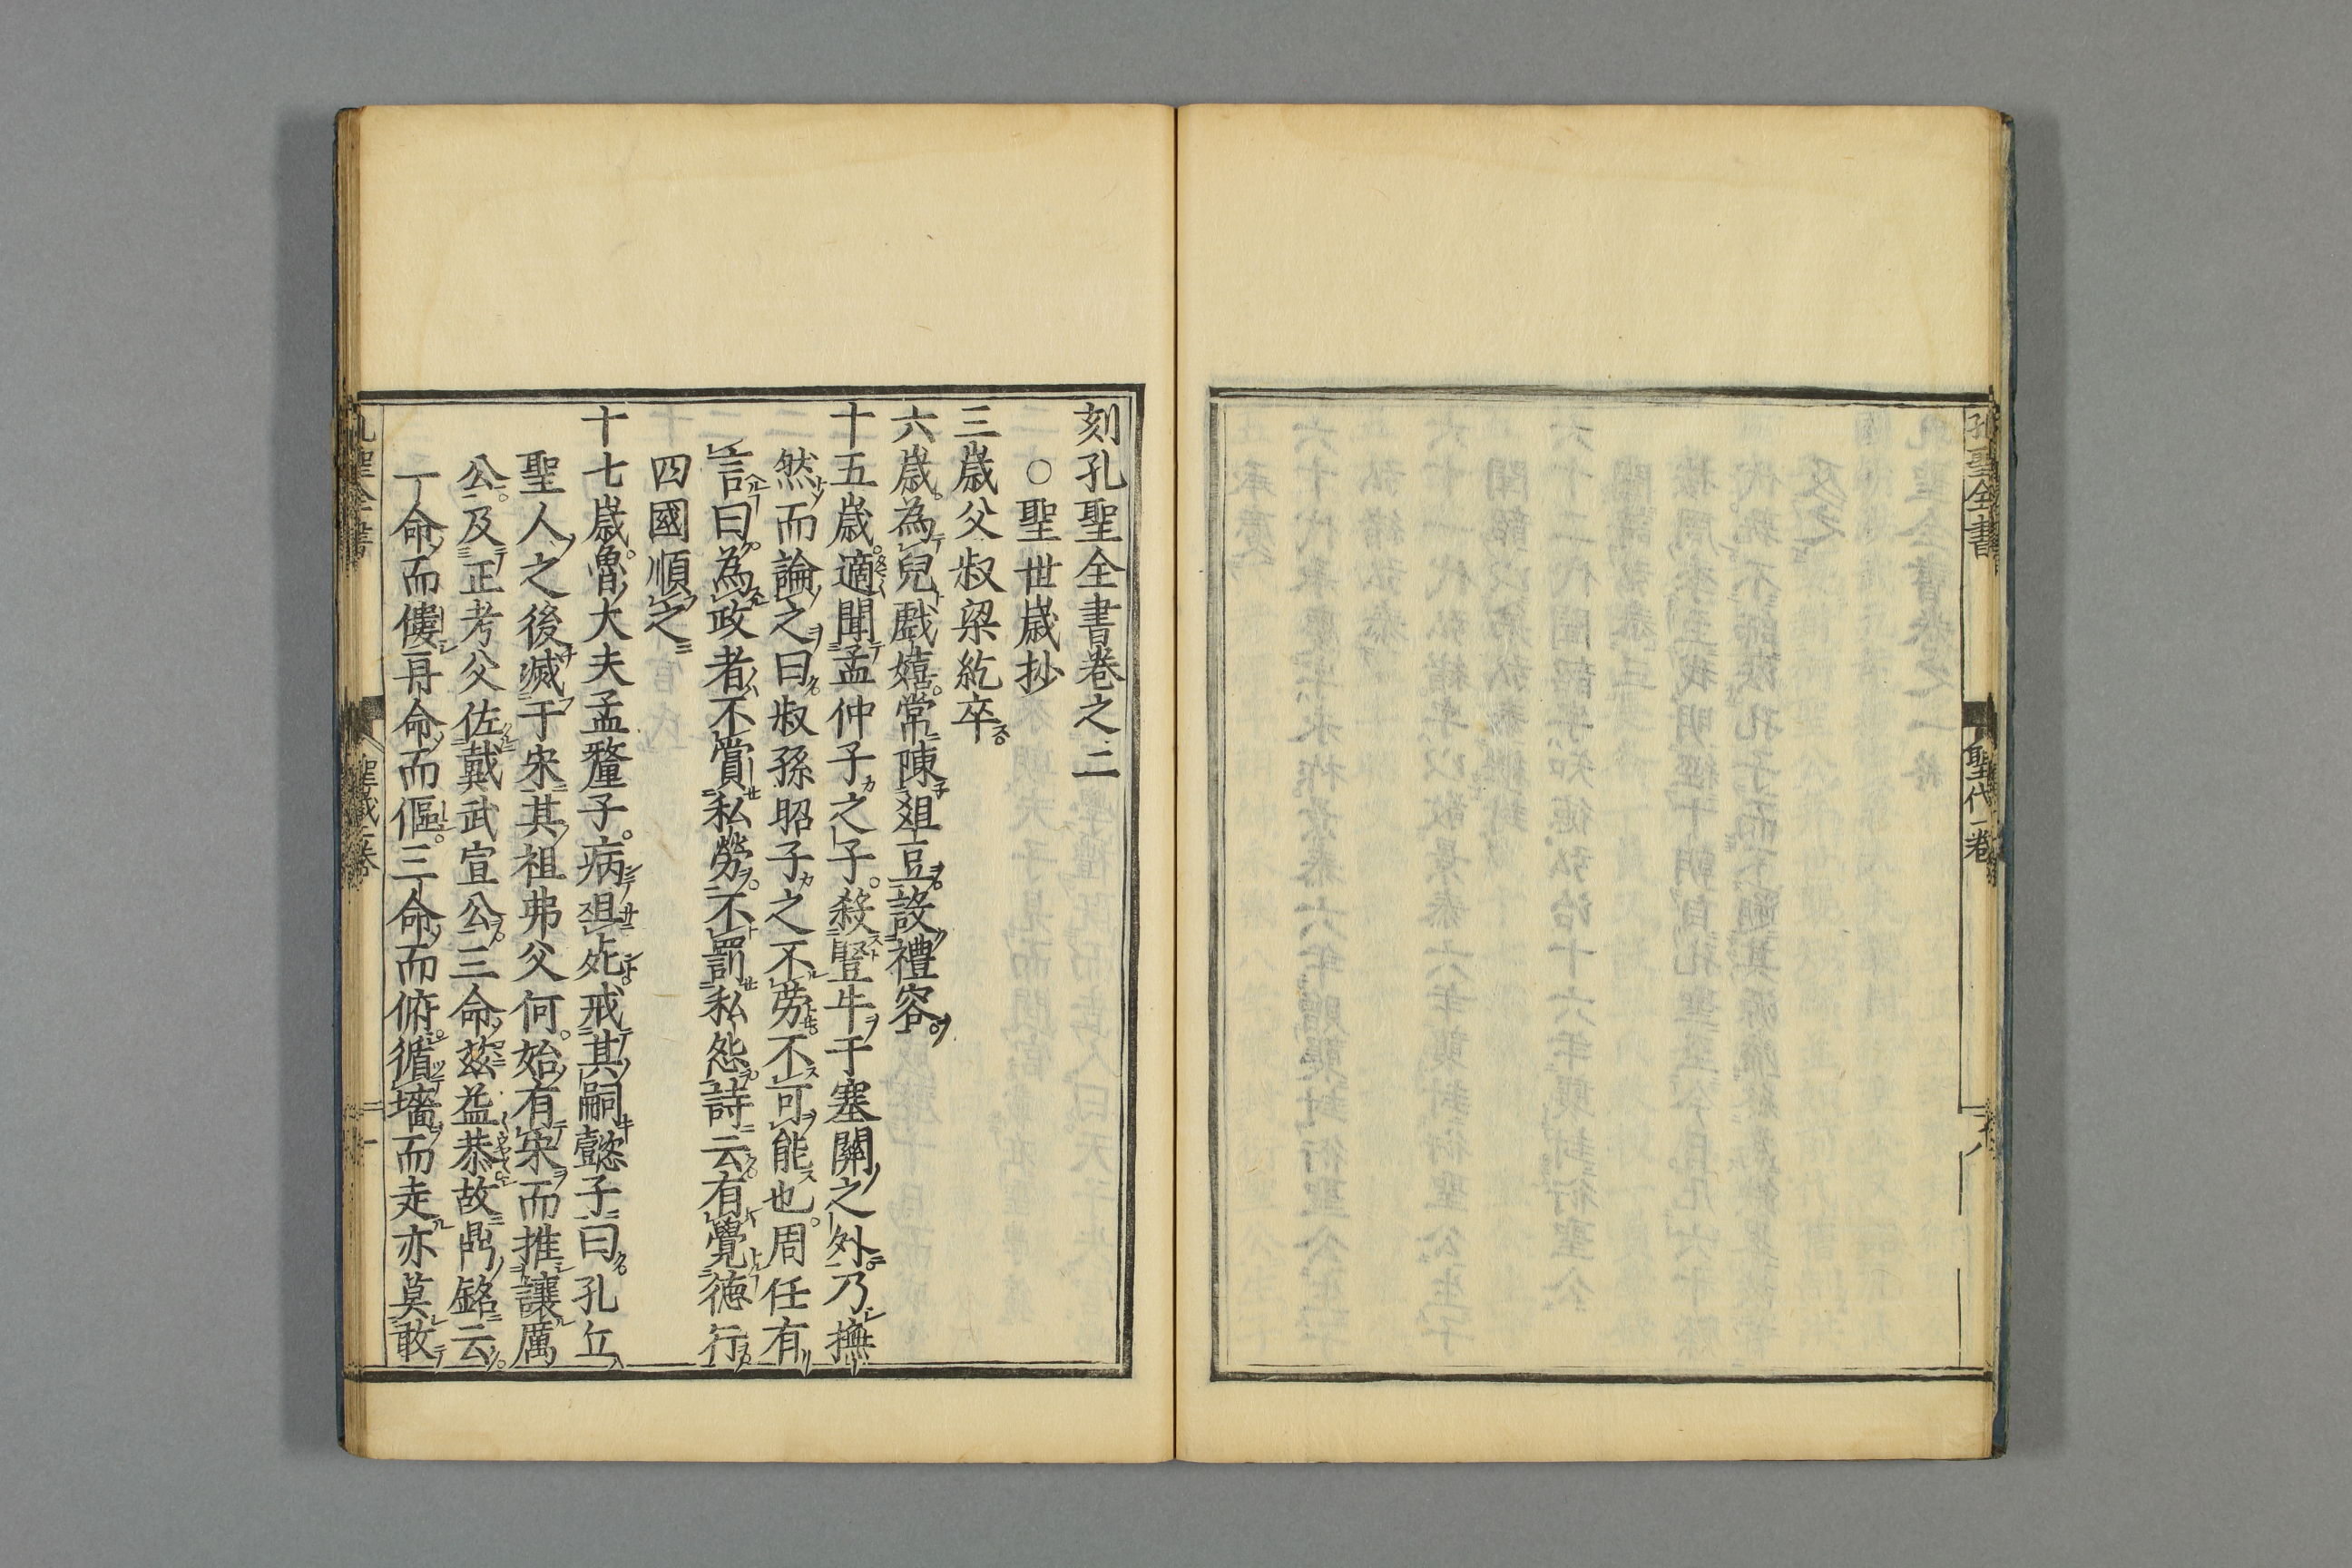 孔聖全書
聖代一卷
刻孔聖全書卷之二
○聖世歲抄
三歲父叔梁紇卒
六歲為兒戲嬉常陳爼豆設禮容
十五歲適聞孟仲子之子殺豎牛于塞關之外乃撫
然而論之曰叔孫昭子之不勞不可能也周任有
言曰為政者不賞私勞不罰私怨詩云有覺德行
四國順之
十七歲魯大夫孟釐子病爼死戒其嗣懿子曰孔丘
聖人之後滅于宋其祖弗父何始有宋而推讓厲
公及正考父佐戴武宣公三命茲益恭故鼎銘云
一命而僂再命而傴三命而俯循墻而走亦莫敢